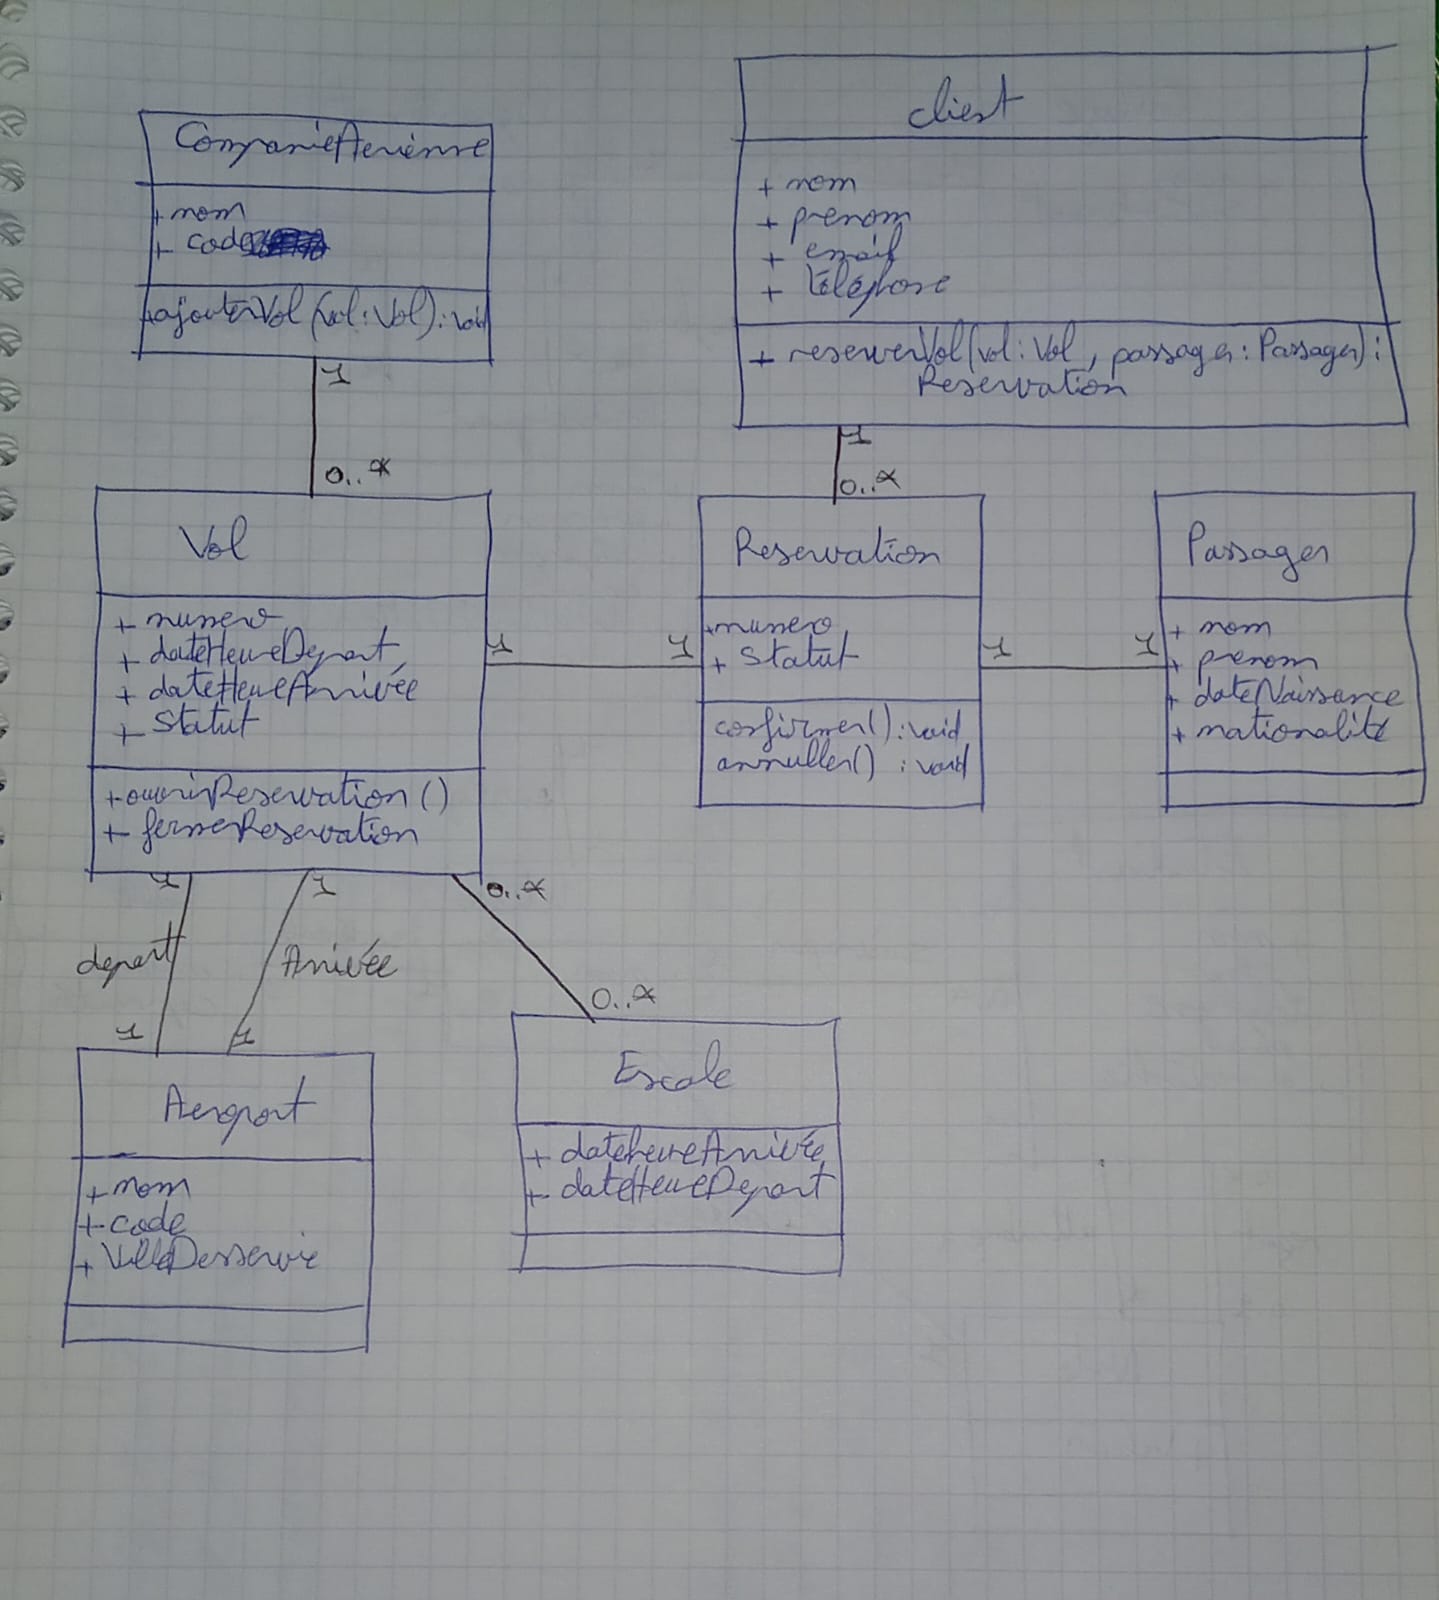 CompanieAerienne
+ nom
+ code
+ajouterVol(vol:Vol):void
1
0..*
client
+ nom
+ prenom
+ email
+ téléphone
+ reserverVol(vol:Vol, passager:Passager):
Reservation
1
0..*
Vol
+ numero
+ dateHeureDepart
+ dateHeureArrivée
+ Statut
+ouvrirReservation()
+ fermerReservation
1
1
Reservation
+numero
+ Statut
confirmer():void
annuller() : void
1
1
Passager
+ nom
+ prenom
+ dateNaissance
+ nationalité
1
1
0..*
depart
Arrivée
1
1
0..*
Aeroport
+ nom
+ code
+ VilleDesservie
Escale
+ dateheureArrivée
+ dateHeureDepart